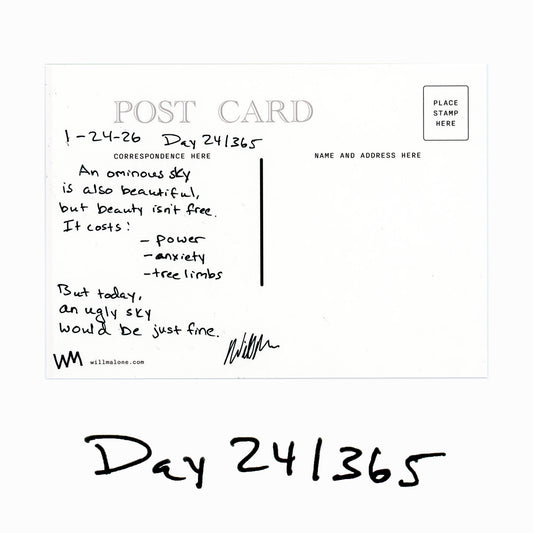 POST CARD
PLACE
STAMP
HERE
1-24-26 Day 24/365
CORRESPONDENCE HERE
NAME AND ADDRESS HERE
An ominous sky
is also beautiful,
but beauty isn't free.
It costs:
- power
- anxiety
- tree limbs
But today,
an ugly sky
would be just fine.
WM willmalone.com
Day 24/365